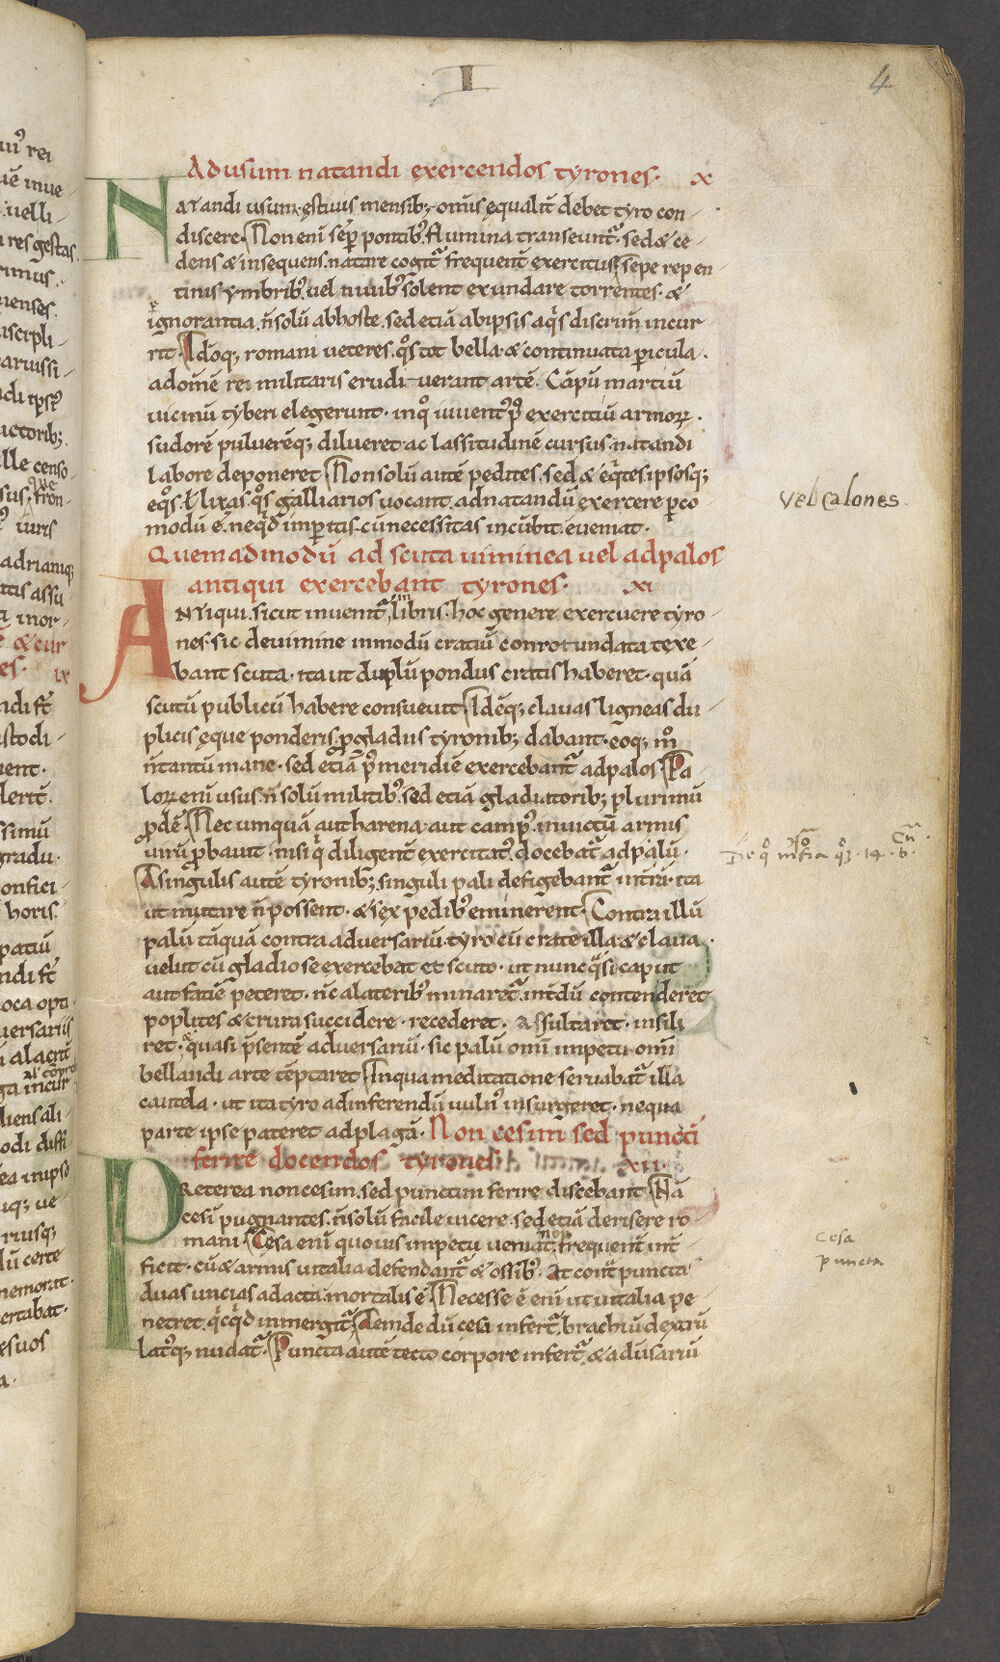 I
4
Ad usum natandi exercendos tyrones. x
Natandi usum. estiuis mensib; omĩs ęqualit̃ debet tyro con-
discere. Non enĩ sẽp pontib' flumina transeunt̃. sed & ce-
dens & insequens. natare cogit̃ frequent̃ exercitus. sepe repen-
tinis ymbrib'. uel niuib' solent exundare torrentes. &
ignorantia. ñ solũ ab hoste. sed etiã ab ipsis aq̃s discrim̃ incur
rit. Idõq; romani ueteres. q̃s tot bella. & continuata pericula.
ad om̃e rei militaris erudi-uerant artẽ. Cãpũ martiũ
uicinũ tyberi elegerunt. inq̊ iuuent' p' exercitiũ armoꝝ.
sudorẽ puluerẽq; dilueret. ac lassitudinẽ cursus. natandi
labore deponeret. Non solũ autẽ pedites. sed & eq̃tes. ipsosq;
eq̊s. ł lixas. q̊s galliarios uocant. ad natandũ exercere perco
modũ ẽ. neq̃d imperitis. cũ necessitas incũbit. eueniat.
Quemadmodũ ad scuta uiminea uel ad palos
antiqui exercebant tyrones. xi
Antiqui. sicut inuenit̃ in libris. hoc genere exercuere tyro-
nes. sic de uimine in modũ cratiũ conrotundata texe-
bant scuta. ita ut duplũ pondus cratis haberet. quã
scutũ publicũ habere consueuit. Idẽq; clauas ligneas du-
plicis ęque ponderis. ꝓ gladiis tyronib; dabant. eoq; m̊
ñ tantũ mane. sed etiã p' meridiẽ exercebant̃ ad palos. Pa-
loꝝ enĩ usus. ñ solũ militib'. sed etiã gladiatorib; plurimũ
ꝓdẽ. Nec umquã aut harena. aut camp'. inuictũ armis
uirũ ꝓbauit. nisi q̃ diligent̃ exercitat'. docebat̃ ad palũ.
A singulis autẽ tyronib; singuli pali defigebant̃ in t̃rã. ita
ut nutare ñ possent. & sex pedib' eminerent. Contra illũ
palũ tãquã contra aduersariũ. tyro cũ crate illa. & claua.
uelut cũ gladio se exercebat et scuto. ut nunc q̃si caput
aut faciẽ peteret. ñc a laterib' minaret̃. int̃dũ contenderet
poplites & crura succidere. recederet. assultaret. insili
ret. & quasi p̃sentẽ aduersariũ. sic palũ omĩ impetu. omĩ
bellandi arte tẽptaret. In qua meditatione seruabat̃ illa
cautela. ut ita tyro ad inferendũ uuln' insurgeret. nequa
parte ipse pateret ad plagã. Non cesim sed puncti
ferire docendos tyrones. xii
Preterea non cesim. sed punctim ferire discebant. Nã
cesĩ pugnantes. ñ solũ facile uicere. sed etiã derisere ro-
mani. Cesa enĩ quouis impetu ueniat. non frequent̃ int̃-
ficit. cũ & armis uitalia defendant̃ & ossib'. At cont̃ puncta
duas uncias adacta. mortalis ẽ. Necesse ẽ enĩ ut uitalia pe-
netret. q̃cq̃d inmergit̃. Deinde dũ cesa infert̃. brachiũ dextrũ
lat'q; nudat̃. Puncta autẽ tecto corpore infert̃. & adũsariũ
vel Calones.
Cesa
puncta